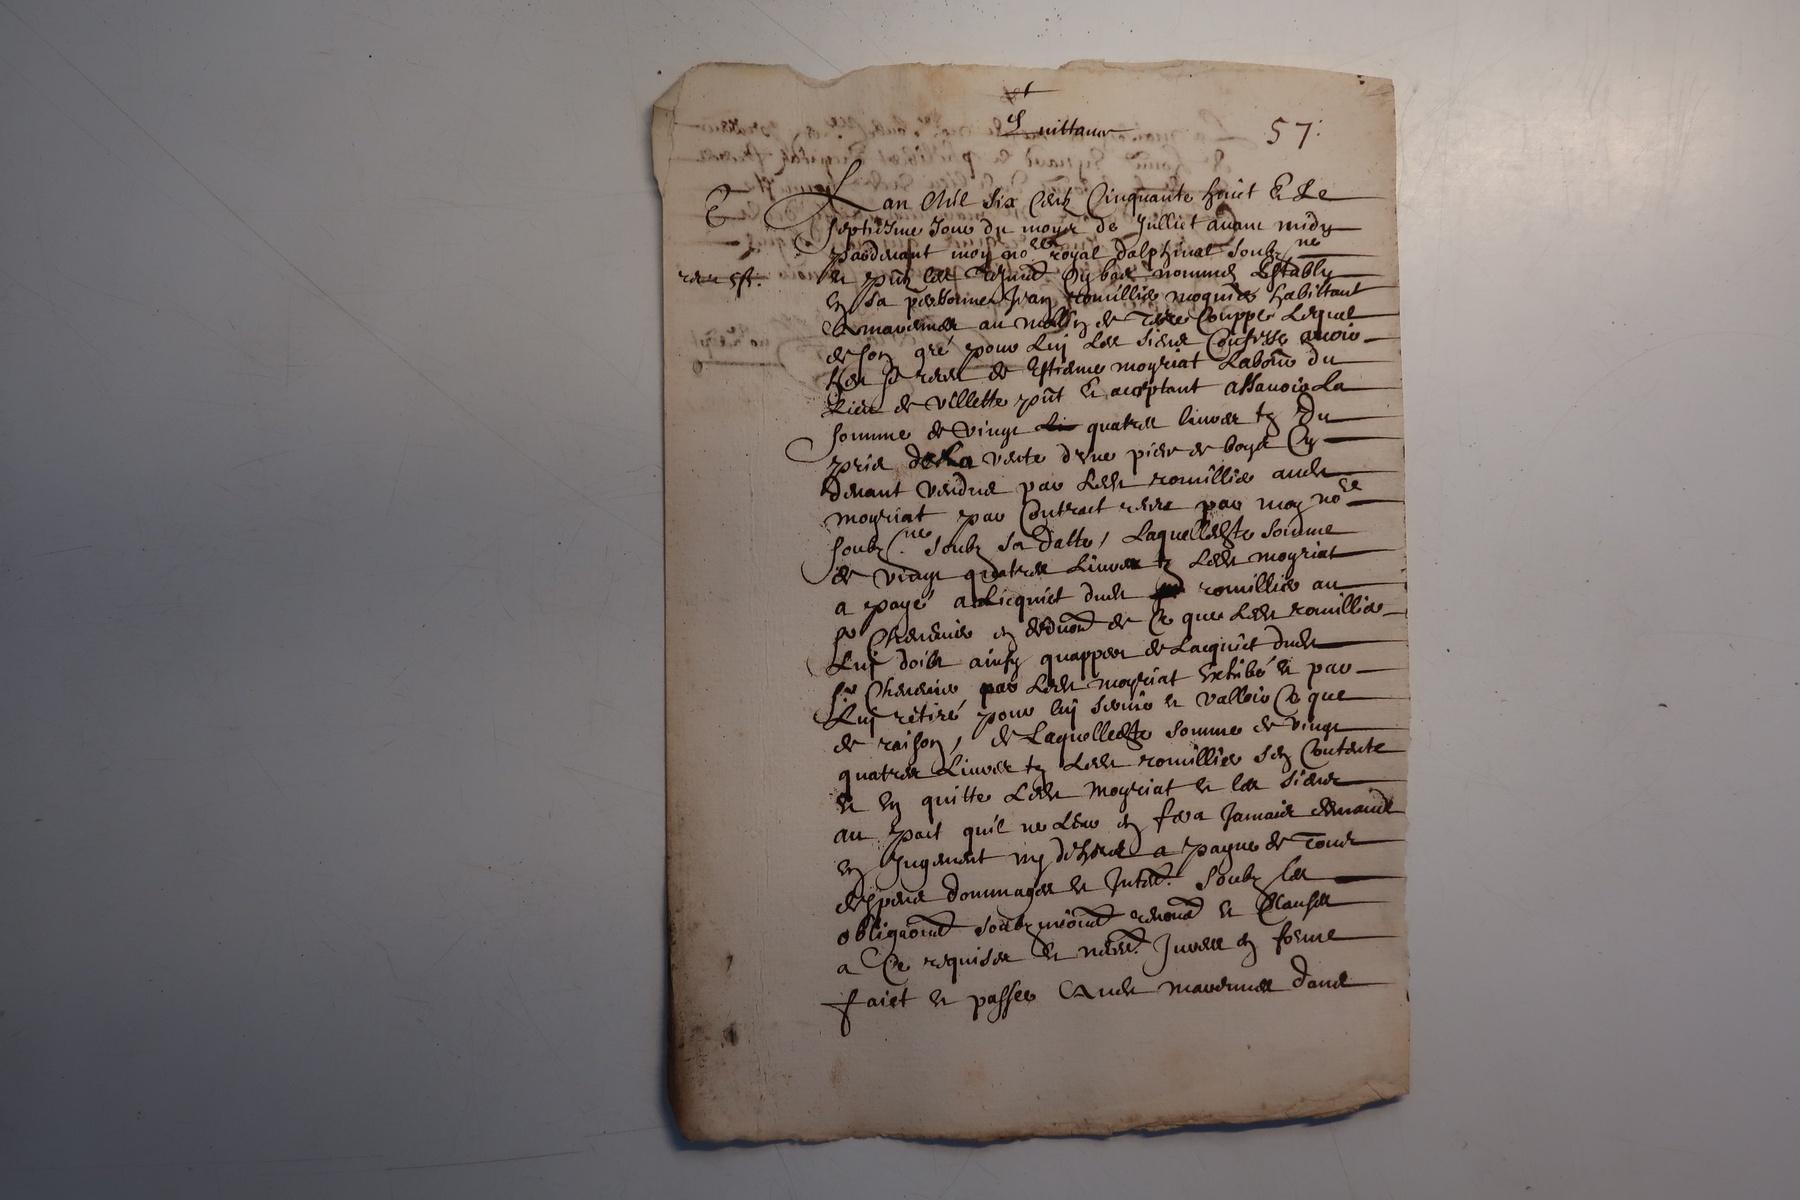 Quittance
57
Lan Mil six Centz Cinquante huict Et Le
septiesme Jour du moys de Juilliet avant midy
pardevant moy no.re royal dalphinal soubz.ne
et pnts les tesmoins Cy bas nommes Estably
En sa personne Jean romillier habittant
a au de Terre Couppe Lequel
de son gré pour Luy Les siens Confesse avoir
heu et receu de Estienne moyriat Labour du
Lieu de Villette pnt et acceptant assavoir La
somme de Vingt quatre livres tz Du
pris de La vente dune piece de boys Cy
devant vendue par Ledt romillier audt
moyriat par Contract receu par moy no.re
soubz.ne soubz sa datte, Laquelledte somme
de vingt quatre Livres tz Ledt moyriat
a payé a Lacquict dudt romillier au
sr en de Ce que Ledt romillier
Luy doibt ainsy quappert de Lacquict dudt
sr par Ledt moyriat Exhibé et par
Luy retiré pour luy servir et valloir Ce que
de raison, de Laquelledte somme de vingt
quatre Livres tz Ledt romillier sen Contente
et En quitte Ledt Moyriat et les siens
au pact quil ne Leur en fera Jamais demande
En Jugement ny dehors a payne de Tous
despens dommages et Intestz. Soubz les
obligaons soubzmissions renons et Clauses
a Ce requises et necess. Jurees en forme
faict et passer Audt dans